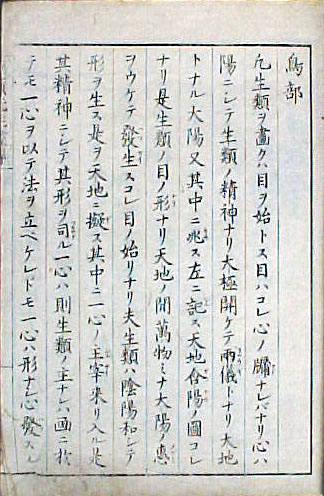 鳥部
凡生類ヲ畫クハ目ヲ始トス目ハコレ心ノ牖ナレバナリ心ハ
陽ニシテ生類ノ精神ナリ大極開ケテ兩儀トナリ天地
トナル大陽又其中ニ兆ス左ニ記ス天地會陽ノ圖コレ
ナリ是生類ノ目ノ形ナリ天地ノ間萬物ミナ大陽ノ惠
ヲウケテ發生スコレ目ノ始リナリ夫生類ハ陰陽和シテ
形ヲ生ス是ヲ天地ニ擬ス其中ニ一心ノ主宰來リ入ル是
其精神ニシテ其形ヲ司ル一心ハ則生類ノ主ナレハ画ニ於
テモ一心ヲ以テ法ヲ立ベケレドモ一心ハ形ナシ心發